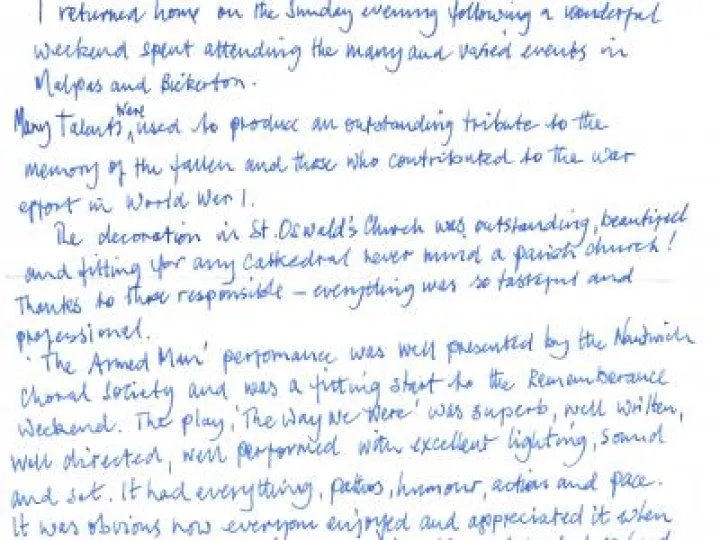 I returned home on the Sunday evening following a wonderful
weekend spent attending the many and varied events in
Malpas and Bickerton.
Many Talents were used to produce an outstanding tribute to the
memory of the fallen and those who contributed to the war
effort in World War I.
The decoration in St. Oswald's Church was outstanding, beautiful
and fitting for any Cathedral never mind a parish church!
Thanks to those responsible – everything was so tasteful and
professional.
'The Armed Man' perfomance was well presented by the Nantwich
Choral Society and was a fitting start to the Rememberance
Weekend. The play, 'The Way We Were' was superb, well written,
well directed, well performed with excellent lighting, sound
and set. It had everything, pathos, humour, action and pace.
It was obvious how everyone enjoyed and appreciated it when